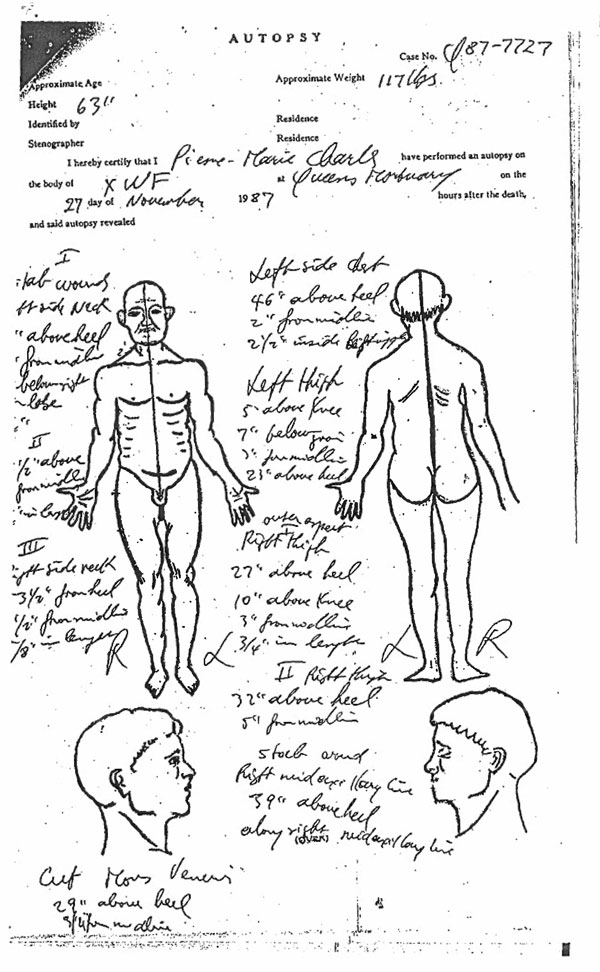 AUTOPSY
Case No. Q87-7727
Approximate Age
Approximate Weight 117 lbs.
Height 63"
Identified by
Residence
Residence
Stenographer
I hereby certify that I Pierre-Marie Charles have performed an autopsy on
the body of X WF at Queens Mortuary on the
27 day of November 1987 hours after the death,
and said autopsy revealed
I
tab wounds
ft side Neck
" above heel
from midlin
below right
lobe
II
1/2" above
from midlin
III
ght side neck
3 1/2" from heel
1/2" from midlin
/8" in length
R
L
Left side chest
46" above heel
2" from midlin
2 1/2" inside left nipple
Left thigh
5" above Knee
7" below groin
" from midlin
23" above heel
outer aspect
I
Right thigh
27" above heel
10" above Knee
3" from midlin
3/4" in length
L
R
II Right thigh
32" above heel
5" from midlin
Stab wound
Right midaxillary line
39" above heel
along right midaxillary line
(OVER)
Cut Mons Veneris
29" above heel
3/4 from midline